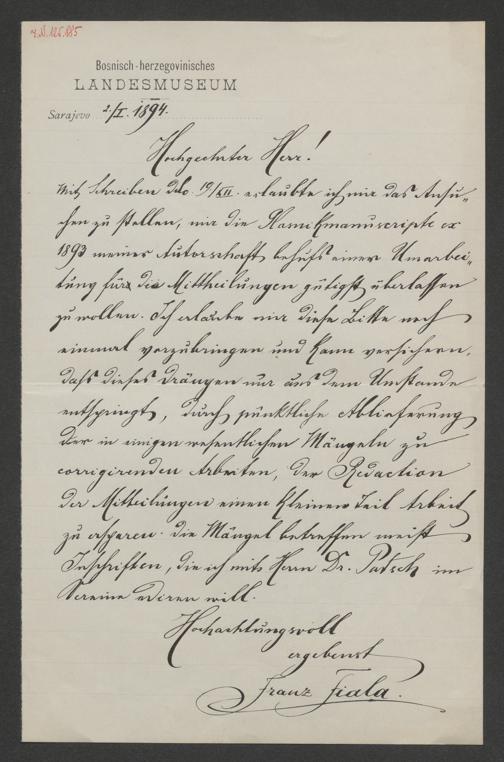 4.N. 126.885
Bosnisch-herzegovinisches
LANDESMUSEUM
Sarajevo 2/I. 1894.
Hochgeehrter Herr!
Mit Schreiben ddo. 19/XII. erlaubte ich mir das Ansu„
chen zu stellen, mir die Glasnikmanuscripte ex
1893 meiner Autorschaft behufs einer Umarbei„
tung für die Mittheilungen gütigst überlassen
zu wollen. Ich erlaube mir diese Bitte noch
einmal vorzubringen und kann versichern,
dass dieses Drängen nur aus dem Umstande
entspringt, durch pünktliche Ablieferung
der in einigen wesentlichen Mängeln zu
corrigirenden Arbeiten, der Redaction
der Mitteilungen einen kleinen Teil Arbeit
zu ersparen. die Mängel betreffen meist
Inschriften, die ich mit Herrn Dr. Patsch im
Vereine ediren will.
Hochachtungsvoll
ergebenst
Franz Fiala.